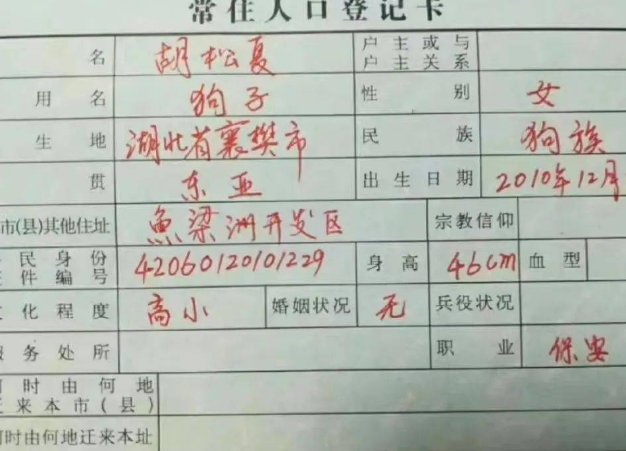 常住人口登记卡
名 胡松夏 户主或与户主关系
用名 狗子 性别 女
生地 湖北省襄樊市 民族 狗族
贯 东亚 出生日期 2010年12月
市(县)其他住址 鱼梁洲开发区 宗教信仰
民身份件编号 42060120101229 身高 46cm 血型
化程度 高小 婚姻状况 无 兵役状况
务处所 职业 保安
时由何地迁来本市(县)
何时由何地迁来本址